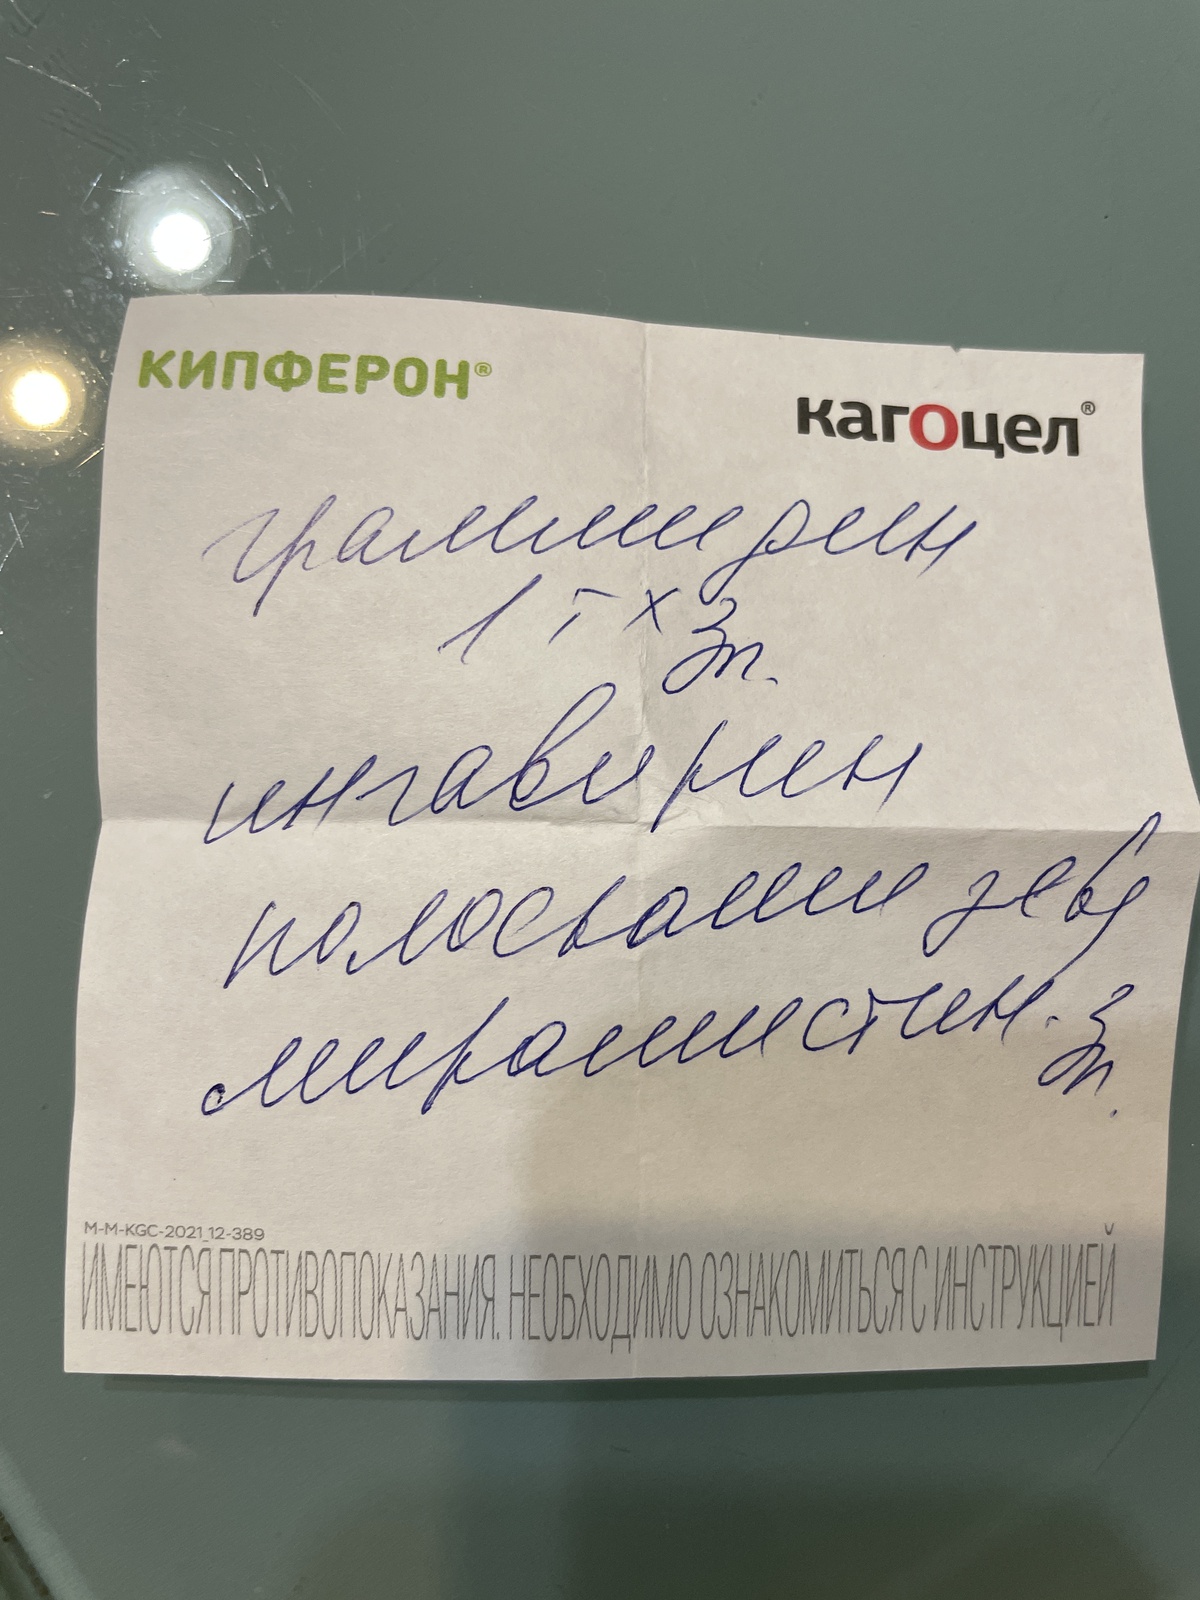 КИПФЕРОН®
кагоцел®
граммидин
1 т х 3 р.
ингавирин
полоскание зева
мирамистин. 3 р.
M-M-KGC-2021_12-389
ИМЕЮТСЯ ПРОТИВОПОКАЗАНИЯ. НЕОБХОДИМО ОЗНАКОМИТЬСЯ С ИНСТРУКЦИЕЙ